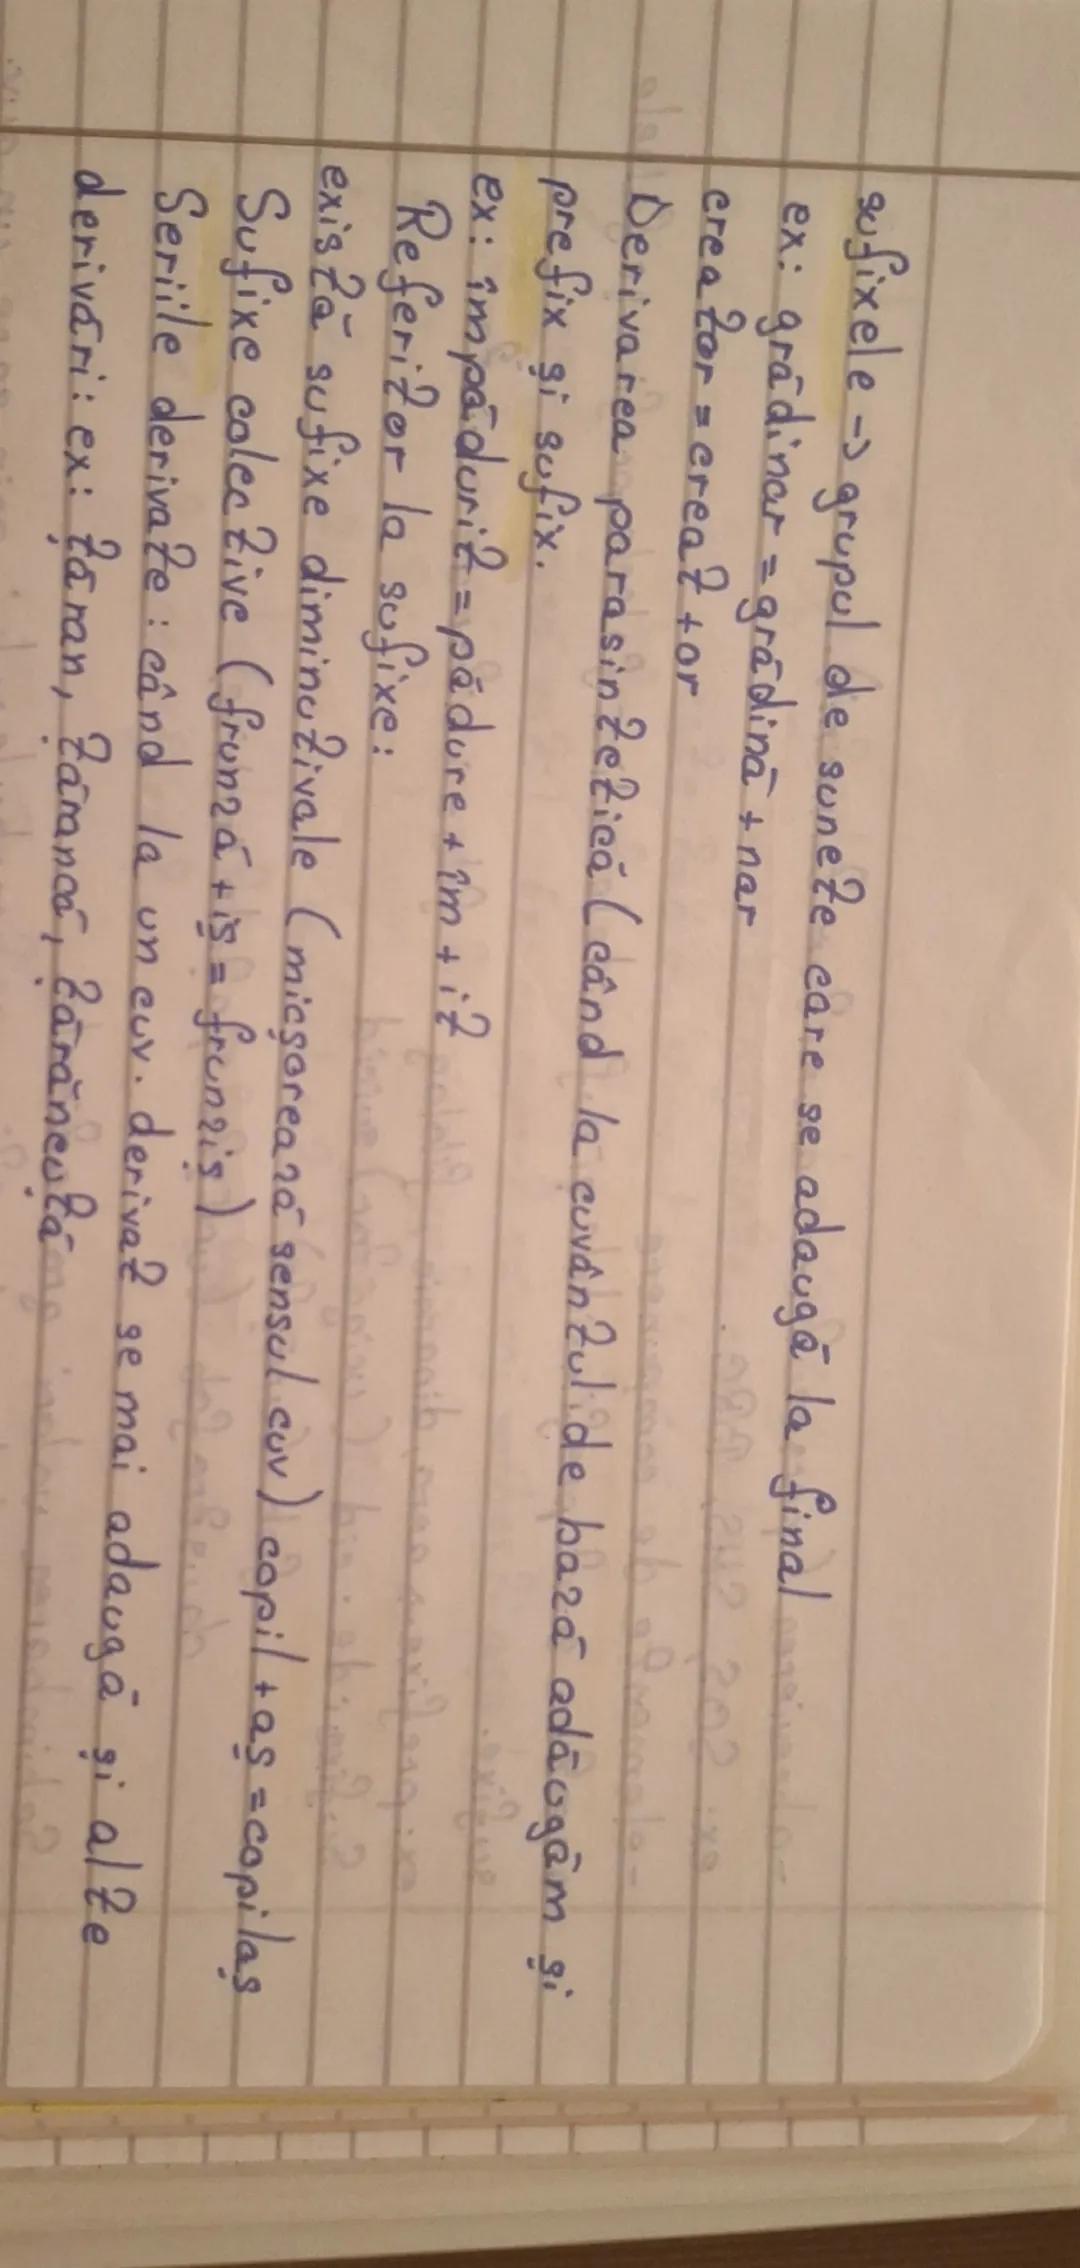 sufixele -> grupul de sunete care se adaugă la final
ex: grădinar = grădină + nar
creator = creat + or
Derivarea parasintetică (când la cuvântul de bază adăugăm și
prefix și sufix.
ex: împădurit = pădure + îm + it
Referitor la sufixe:
există sufixe diminutivale (micșorează sensul cuv) copil + aș = copilaș
Sufixe colective (frunză + iș = frunziș)
Seriile derivate: când la un cuv. derivat se mai adaugă și alte
derivări: ex: țăran, țărancă, țărăncuță